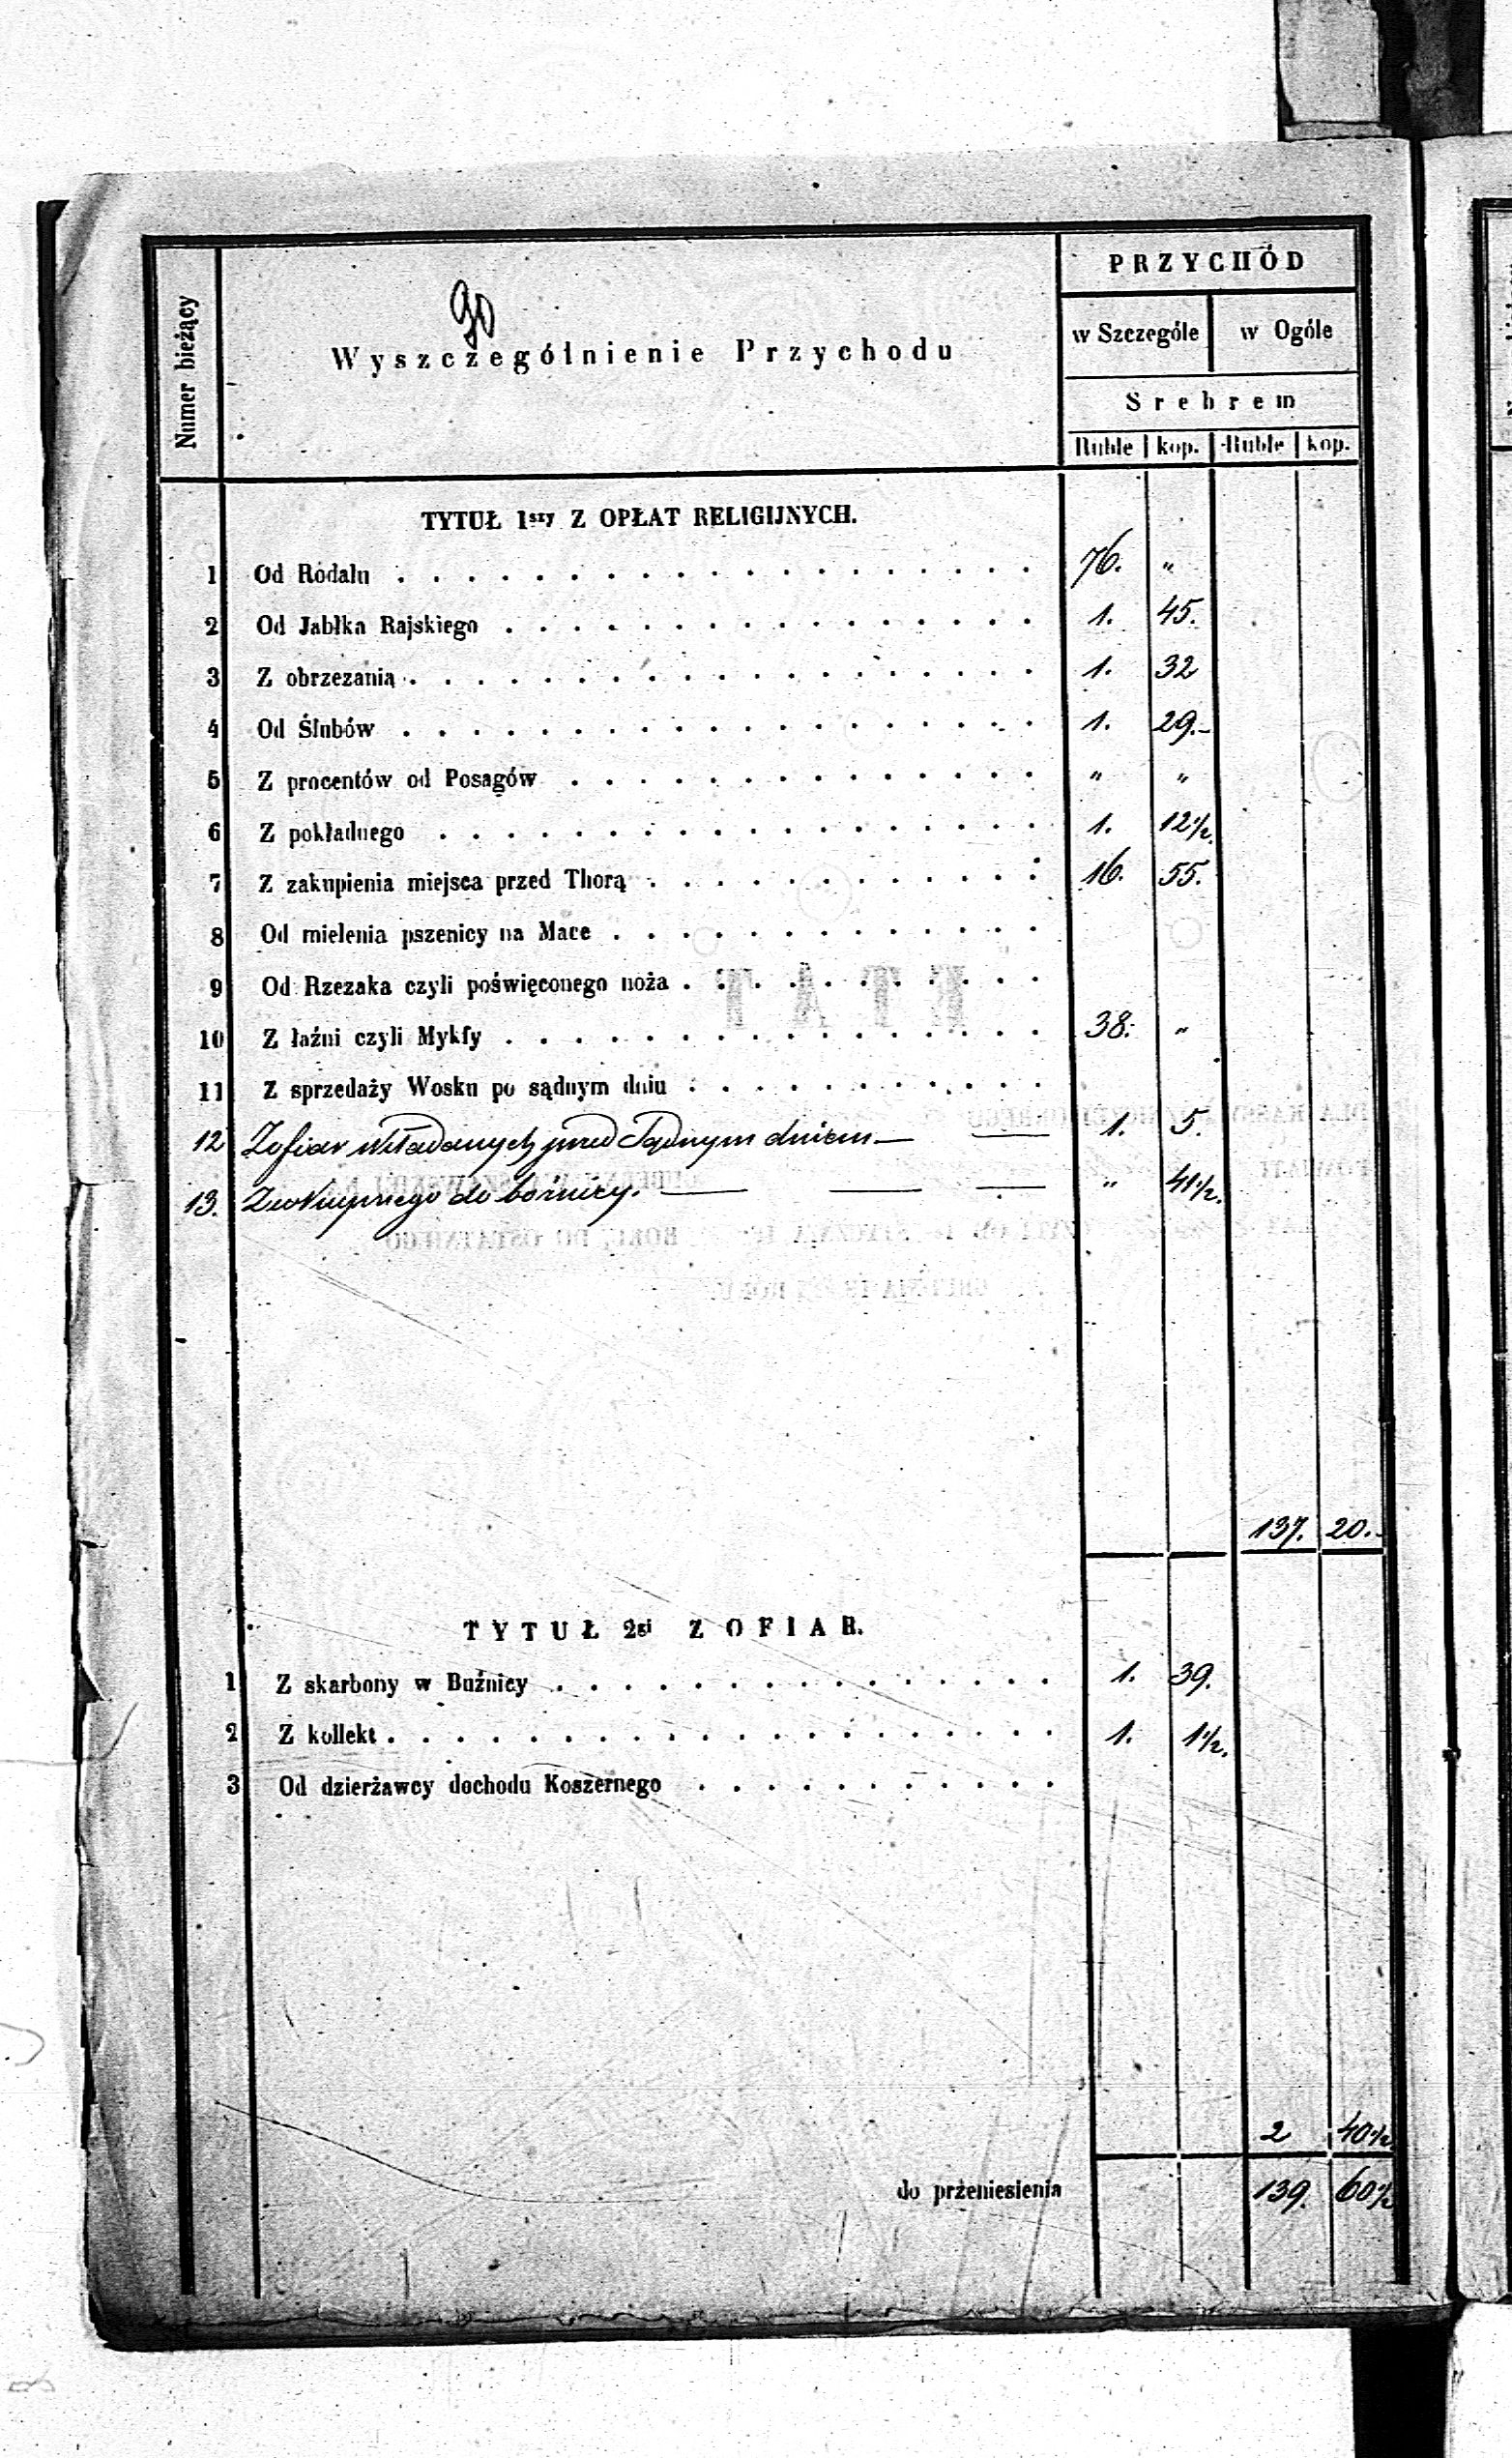 90
Numer bieżący
Wyszczególnienie Przychodu
PRZYCHÓD
w Szczególe w Ogóle
Srebrem
Ruble kop. Ruble kop.
TYTUŁ 1szy Z OPŁAT RELIGIJNYCH.
1 Od Rodału 76. "
2 Od Jabłka Rajskiego 1. 45.
3 Z obrzezania 1. 32
4 Od Ślubów 1. 29.-
5 Z procentów od Posagów " "
6 Z pokładnego 1. 12 1/2.
7 Z zakupienia miejsca przed Thorą 16. 55.
8 Od mielenia pszenicy na Mace
9 Od Rzezaka czyli poświęconego noża
10 Z łaźni czyli Mykfy 38. "
11 Z sprzedaży Wosku po sądnym dniu
12 Z ofiar wkładanych przed Sądnym dniem 1. 5.
13. Z wkupnego do bożnicy. " 41 1/2.
137. 20.
TYTUŁ 2gi Z OFIAR.
1 Z skarbony w Bużnicy 1. 39.
2 Z kollekt 1. 1 1/2.
3 Od dzierżawcy dochodu Koszernego
2 40 1/2
do przeniesienia 139. 60 1/2